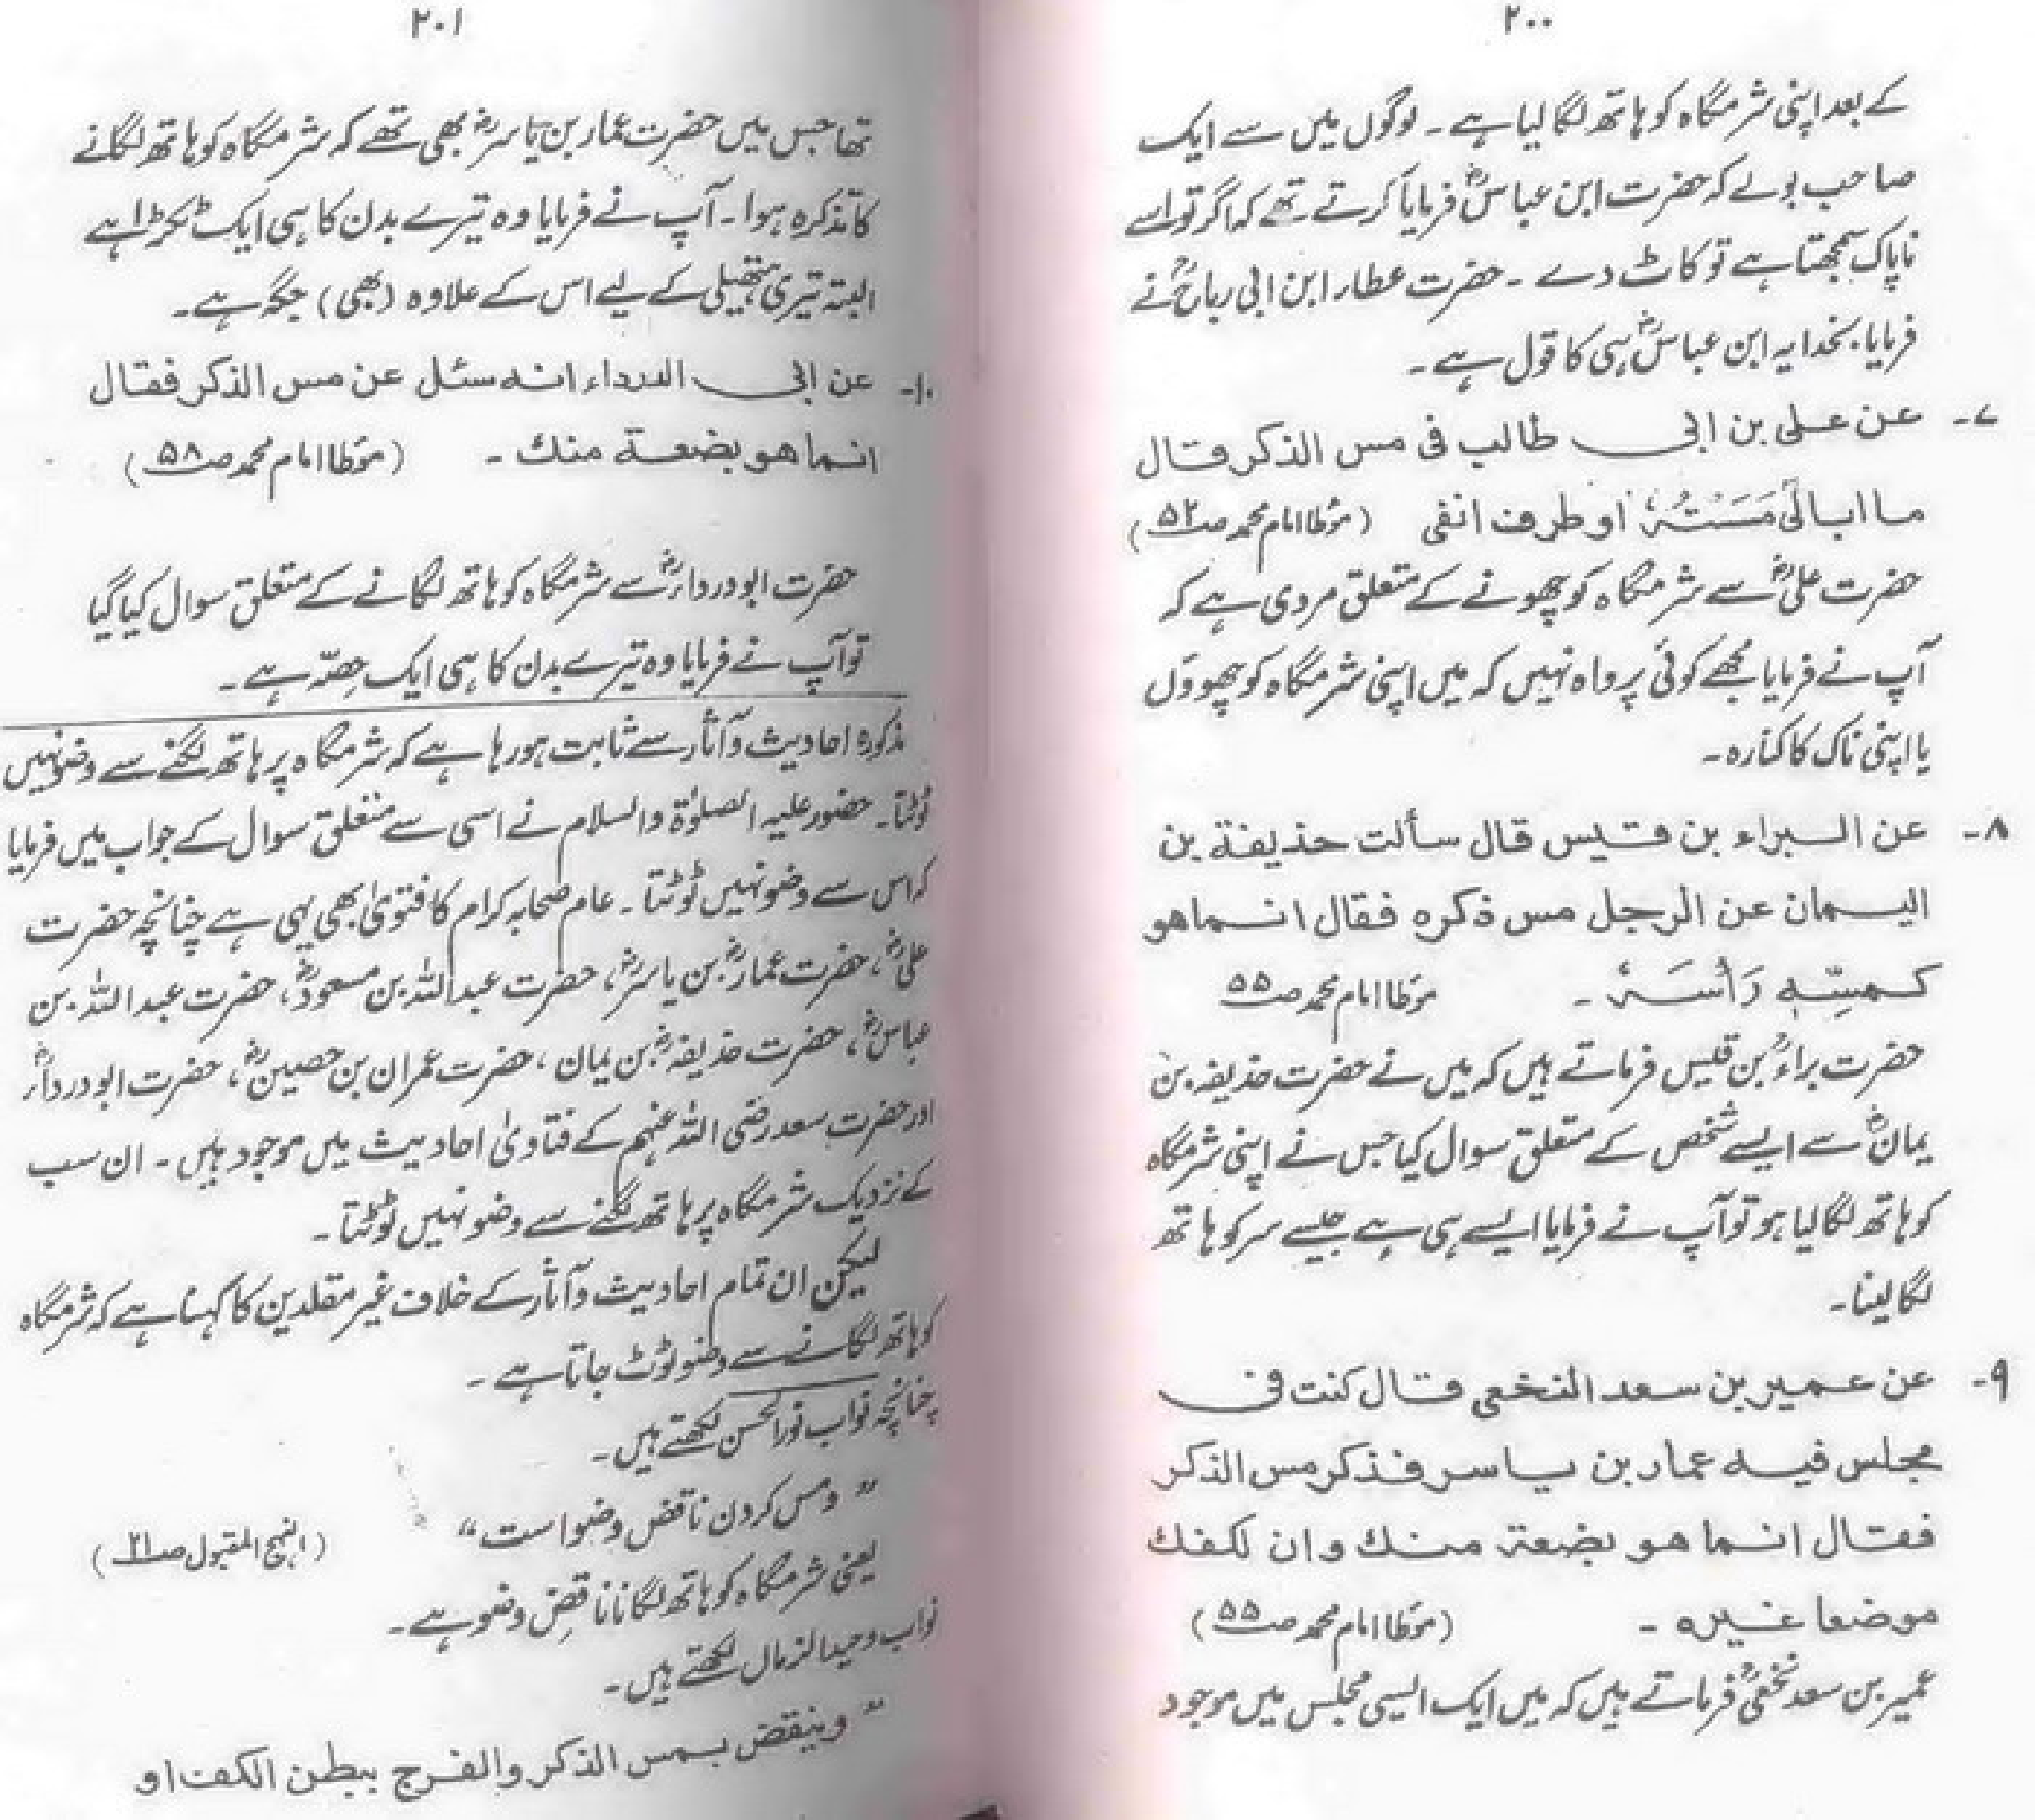 ۲۰۰
کے بعد اپنی شرمگاہ کو ہاتھ لگا لیا ہے۔ لوگوں میں سے ایک
صاحب بولے کہ حضرت ابن عباسؓ فرمایا کرتے تھے کہ اگر تو اسے
ناپاک سمجھتا ہے تو کاٹ دے ۔ حضرت عطار ابن ابی رباحؒ نے
فرمایا۔ بخدا یہ ابن عباسؓ ہی کا قول ہے۔
۷۔ عن علی بن ابی طالب فی مس الذکر قال
ما ابالی مَسَسْتُہٗ او طرف انفی (مؤطا امام محمد صـ ۵۲)
حضرت علیؓ سے شرمگاہ کو چھونے کے متعلق مروی ہے کہ
آپ نے فرمایا مجھے کوئی پرواہ نہیں کہ میں اپنی شرمگاہ کو چھوؤں
یا اپنی ناک کا کنارہ۔
۸۔ عن البراء بن قیس قال سألت حذیفة بن
الیمان عن الرجل مس ذکره فقال انما هو
کمسِّہٖ رَأْسَہٗ ۔ مؤطا امام محمد صـ ۵۵
حضرت براءؒ بن قیس فرماتے ہیں کہ میں نے حضرت حذیفہ بن
یمانؓ سے ایسے شخص کے متعلق سوال کیا جس نے اپنی شرمگاہ
کو ہاتھ لگا لیا ہو تو آپ نے فرمایا ایسے ہی ہے جیسے سر کو ہاتھ
لگا لینا۔
۹۔ عن عمیر بن سعد النخعی قال کنت فی
مجلس فیه عمار بن یاسر فذکر مس الذکر
فقال انما هو بضعة منك وان لکفك
موضعا غیره ۔ (مؤطا امام محمد صـ ۵۵)
عمیر بن سعد نخعیؒ فرماتے ہیں کہ میں ایک ایسی مجلس میں موجود
۲۰۱
تھا جس میں حضرت عمار بن یاسرؓ بھی تھے کہ شرمگاہ کو ہاتھ لگانے
کا تذکرہ ہوا۔ آپ نے فرمایا وہ تیرے بدن کا ہی ایک ٹکڑا ہے
البتہ تیری ہتھیلی کے لیے اس کے علاوہ (بھی) جگہ ہے۔
۱۰۔ عن ابی الدرداء انه سئل عن مس الذکر فقال
انما هو بضعة منك ۔ (مؤطا امام محمد صـ ۵۸)
حضرت ابودرداءؓ سے شرمگاہ کو ہاتھ لگانے کے متعلق سوال کیا گیا
تو آپ نے فرمایا وہ تیرے بدن کا ہی ایک حصّہ ہے۔
مذکورہ احادیث و آثار سے ثابت ہو رہا ہے کہ شرمگاہ پر ہاتھ لگنے سے وضو نہیں
ٹوٹتا۔ حضور علیہ الصلوٰۃ والسلام نے اسی سے متعلق سوال کے جواب میں فرمایا
کہ اس سے وضو نہیں ٹوٹتا۔ عام صحابہ کرام کا فتویٰ بھی یہی ہے چنانچہ حضرت
علیؓ، حضرت عمارؓ بن یاسرؓ، حضرت عبداللہ بن مسعودؓ، حضرت عبداللہ بن
عباسؓ، حضرت حذیفہؓ بن یمان، حضرت عمران بن حصینؓ، حضرت ابودرداءؓ
اور حضرت سعد رضی اللہ عنہم کے فتاویٰ احادیث میں موجود ہیں۔ ان سب
کے نزدیک شرمگاہ پر ہاتھ لگنے سے وضو نہیں ٹوٹتا۔
لیکن ان تمام احادیث و آثار کے خلاف غیر مقلدین کا کہنا ہے کہ شرمگاہ
کو ہاتھ لگانے سے وضو ٹوٹ جاتا ہے۔
چنانچہ نواب نورالحسن لکھتے ہیں۔
” ومس کردن ناقض وضو است“ (النہج المقبول صـ ۲۱)
یعنی شرمگاہ کو ہاتھ لگانا ناقضِ وضو ہے۔
نواب وحید الزمال لکھتے ہیں۔
” وینقض بمس الذکر والفرج ببطن الکف او